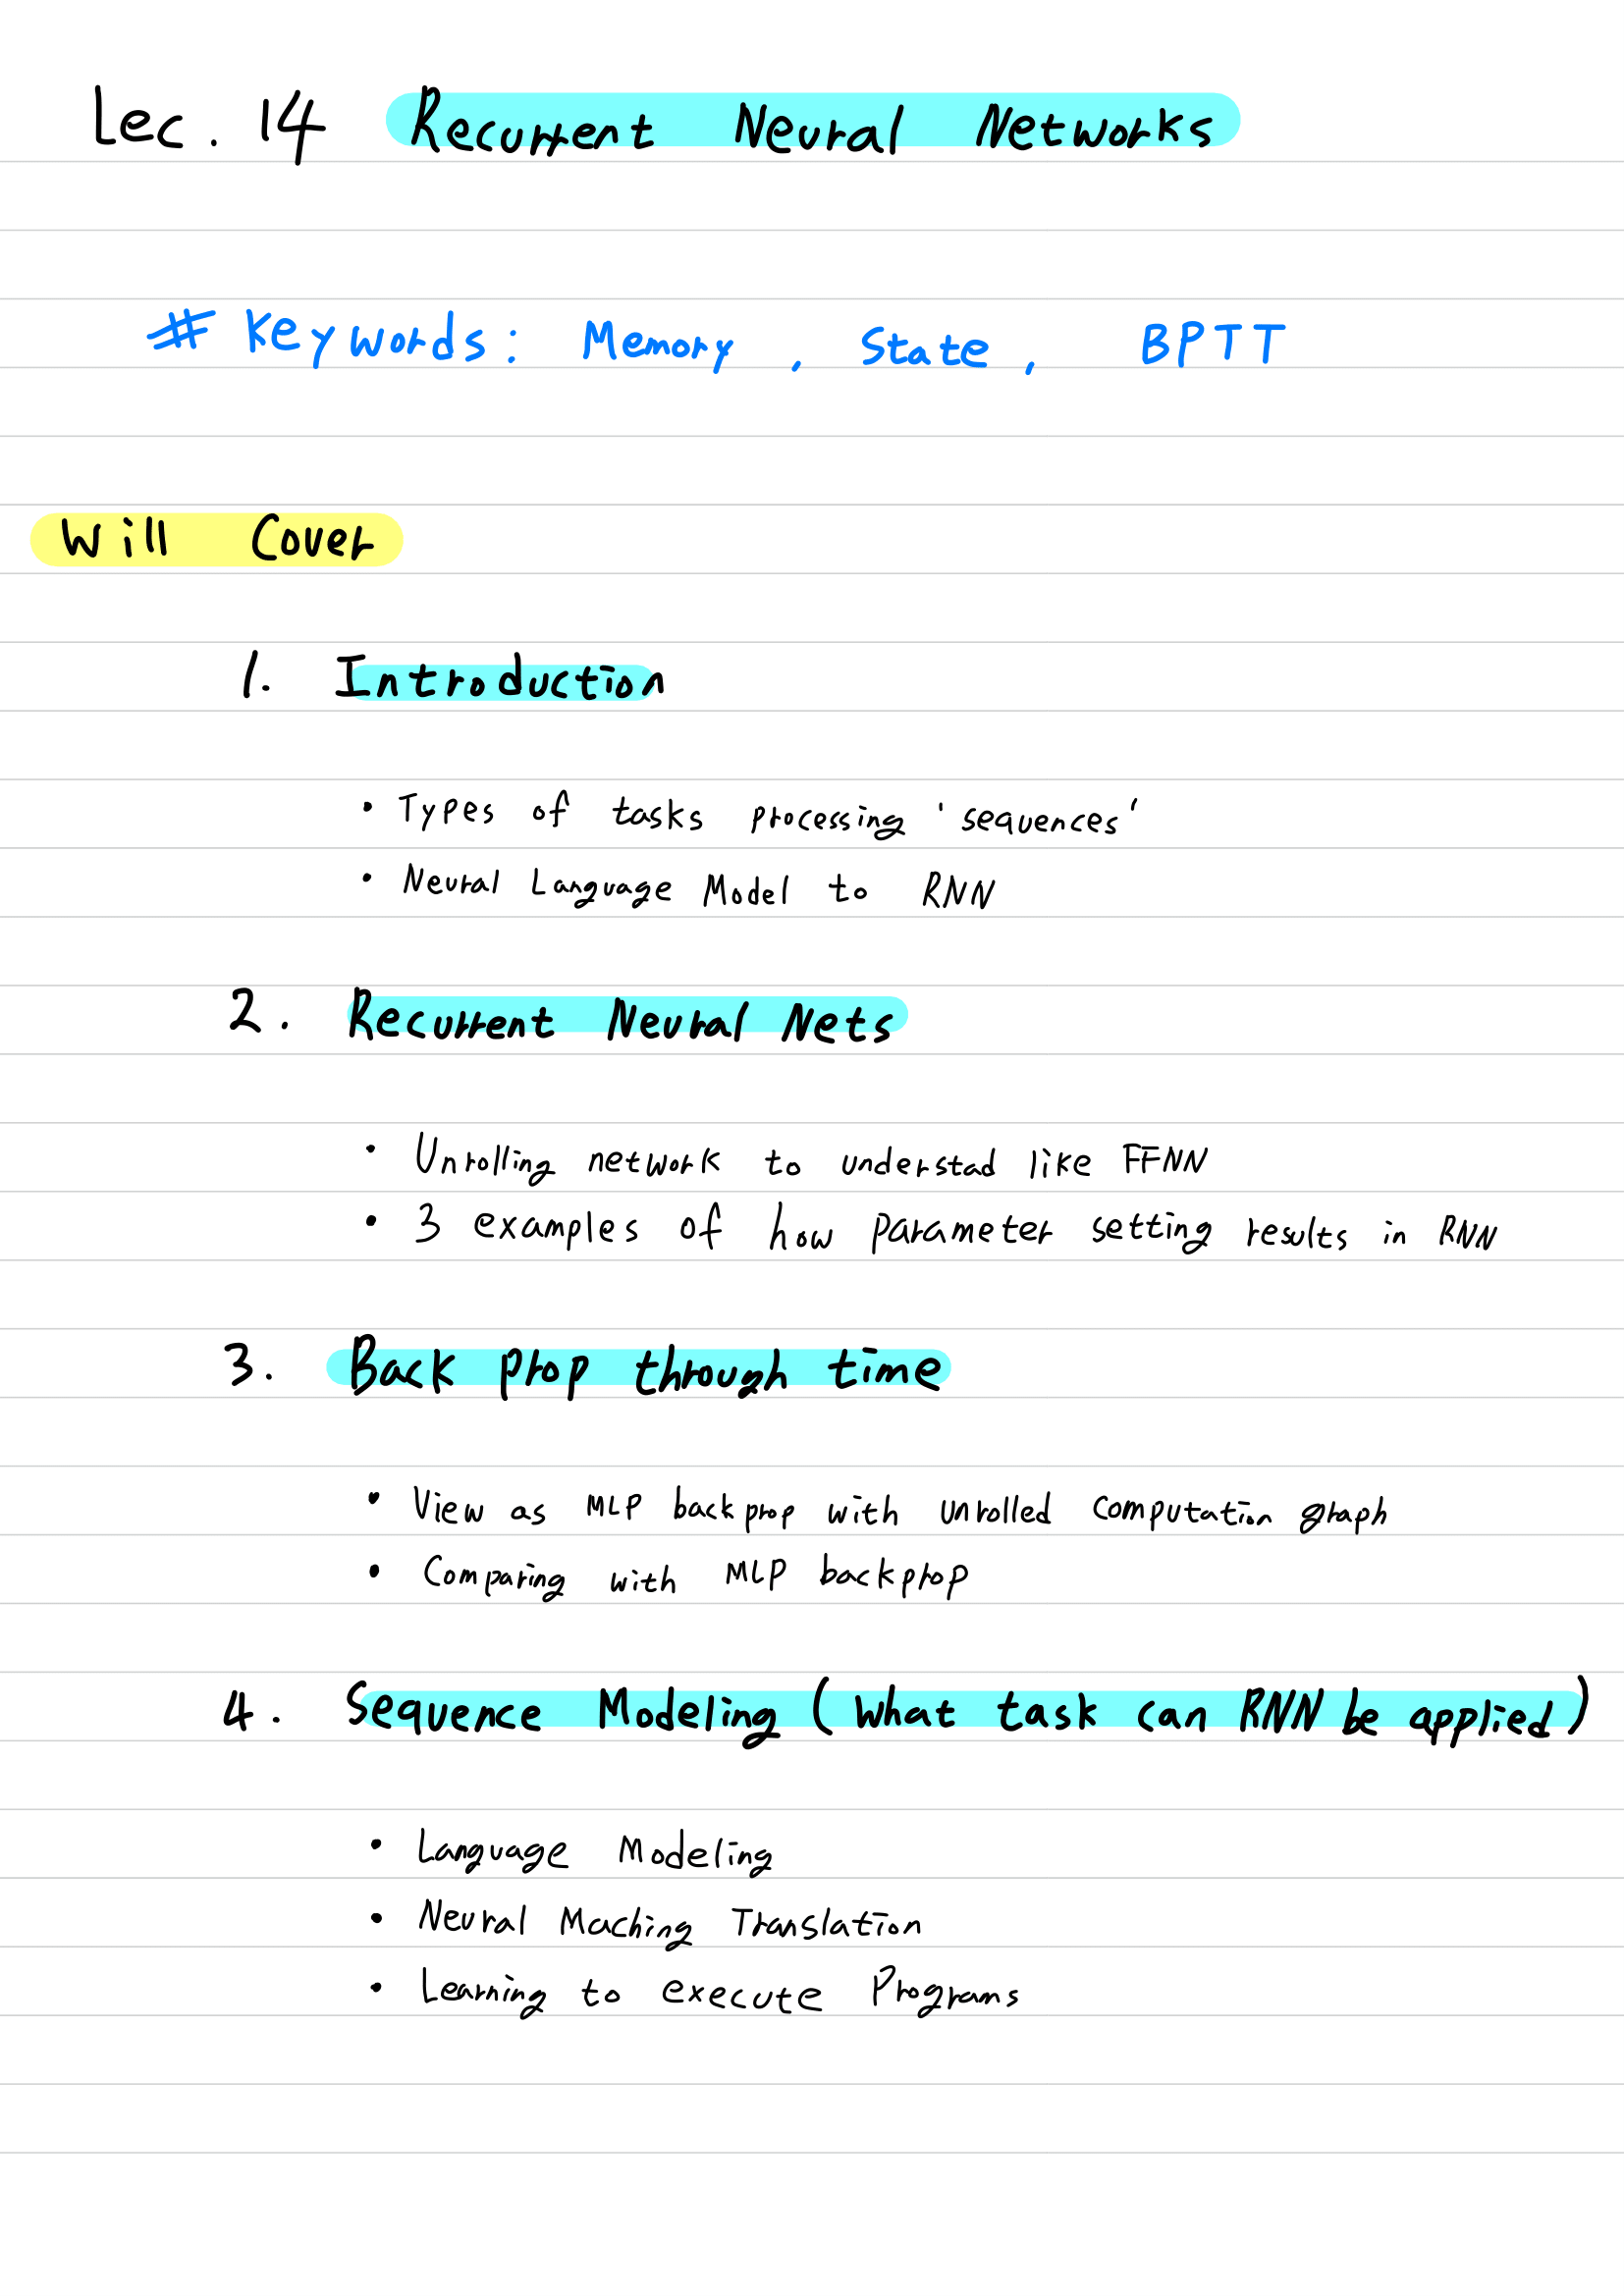 Lec. 14 Recurrent Neural Networks
# Keywords: Memory, State, BPTT
Will Cover
1. Introduction
• Types of tasks processing 'sequences'
• Neural Language Model to RNN
2. Recurrent Neural Nets
• Unrolling network to understad like FFNN
• 3 examples of how parameter setting results in RNN
3. Back prop through time
• View as MLP backprop with unrolled computation graph
• Comparing with MLP backprop
4. Sequence Modeling (What task can RNN be applied)
• Language Modeling
• Neural Maching Translation
• Learning to execute Programs